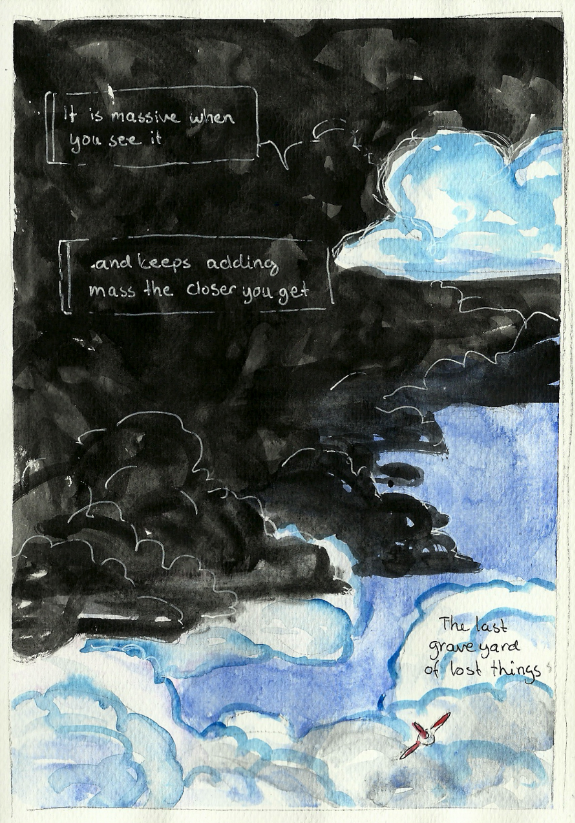 It is massive when
you see it
.and keeps adding
mass the closer you get
The last
grave yard
of lost things